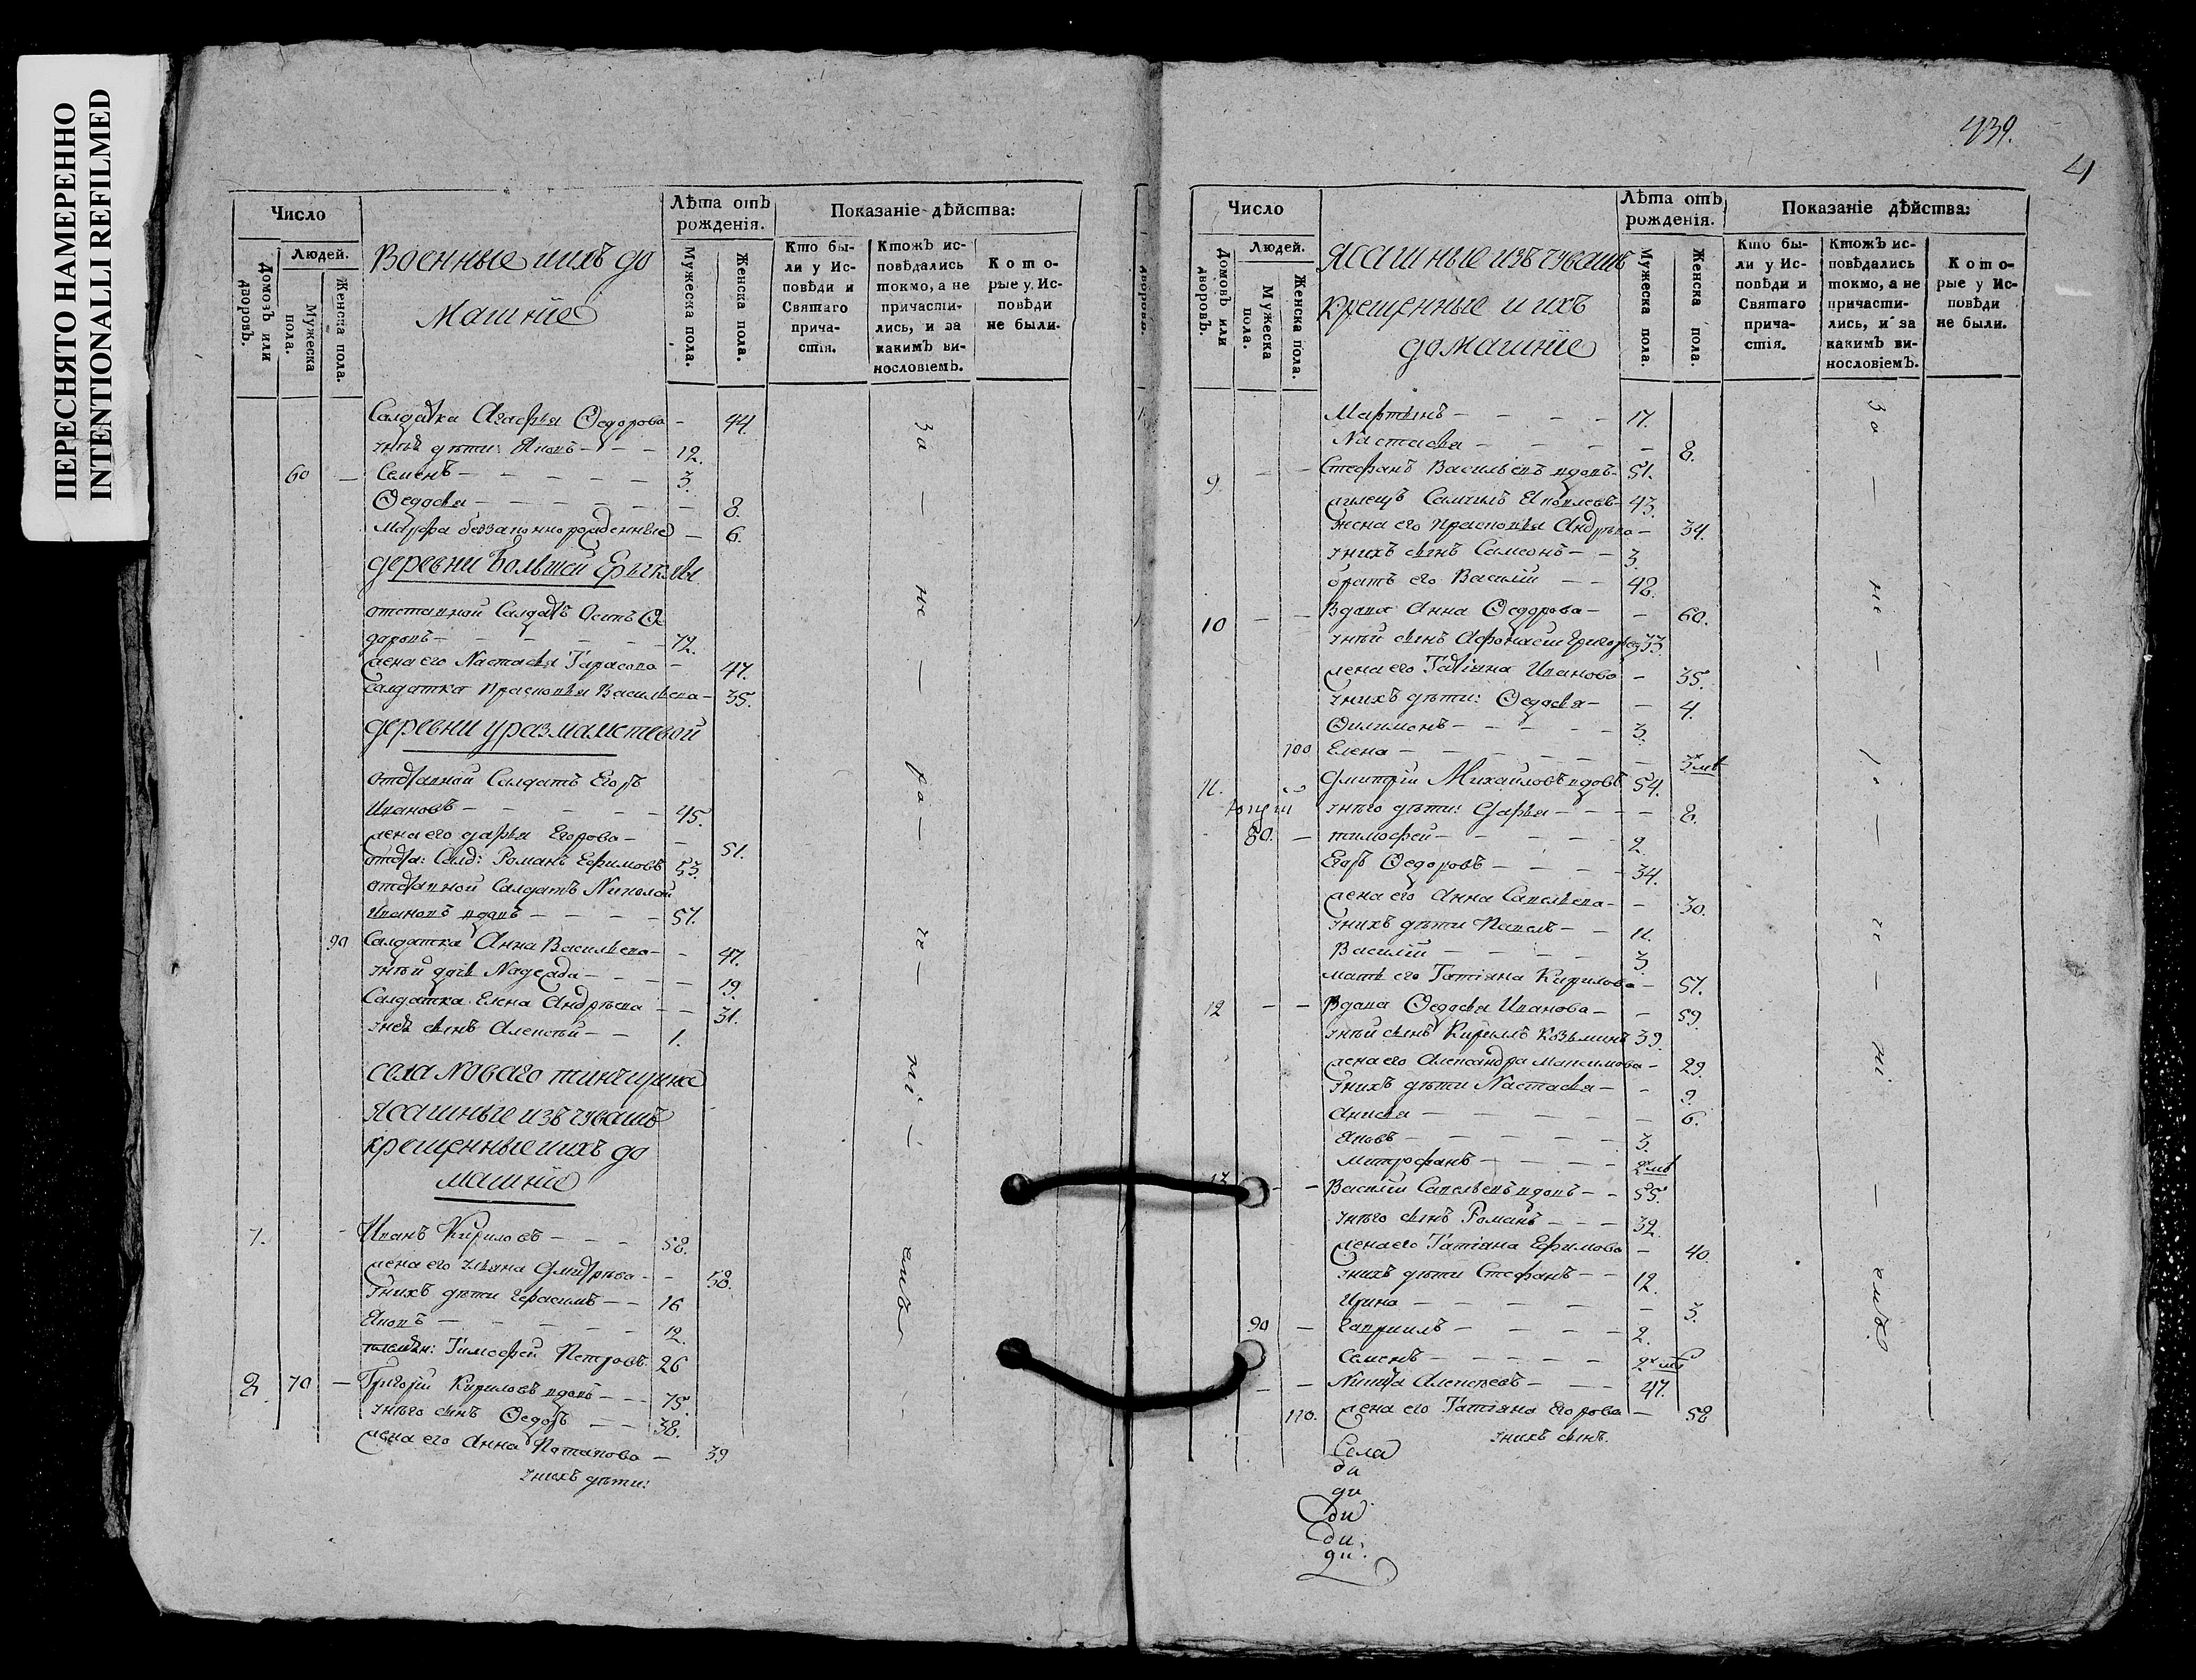 ПЕРЕСНЯТО НАМЕРЕННО
INTENTIONALLI REFILMED
Число
Людей.
Домовъ или дворовъ.
Мужеска пола.
Женска пола.
Военные и ихъ до
машніе
Лѣта отъ рожденія.
Мужеска пола.
Женска пола.
Показаніе дѣйства:
Кто были у Исповѣди и Святаго причастія.
Ктожъ исповѣдались токмо, а не причастились, и за какимъ винословіемъ.
Которые у Исповѣди не были.
Салдатка Агафья Ѳедорова - 44.
унеѣ дѣти: Яковъ - 12.
60 - Семенъ - 3.
Ѳедосья - 8.
Марфа беззаконнорожденные - 6.
деревни Большей Ерыклы
отставной Салдатъ Осипъ Ѳе
доровъ - 72.
жена его Настасья Тарасова - 47.
Салдатка Прасковья Васильева - 35.
деревни уразмаметевой
отставной Салдатъ Егоръ
Ивановъ - 45.
жена его дарья Егорова - 51.
отста: Салд: Романъ Ефимовъ 53.
отставной Салдатъ Николай
Ивановъ вдовъ - 57.
90 Салдатка Анна Васильева - 47.
унѣй дочь Надежда - 19.
Салдатка Елена Андрѣева - 31.
унеѣ сынъ Алексѣй - 1.
села Новаго тинчурина
Ясашные изъ чувашъ
крещенные и ихъ до
машніе
7. - Иванъ Кириловъ - 58.
жена его Ульяна Дмитрѣва - 58.
унихъ дѣти Герасимъ - 16
Яковъ - 12.
Тимофей Петровъ 26
8. 70 - Григорій Кириловъ вдовъ - 75.
унего сынъ Ѳедоръ - 38.
жена его Анна Потапова - 39
унихъ дѣти:
За - не - ра - че - ні - емъ
439.
4
Число
Людей.
Домовъ или дворовъ.
Мужеска пола.
Женска пола.
Ясашные изъ чувашъ
крещенные и ихъ
домашніе
Лѣта отъ рожденія.
Мужеска пола.
Женска пола.
Показаніе дѣйства:
Кто были у Исповѣди и Святаго причастія.
Ктожъ исповѣдались токмо, а не причастились, и за какимъ винословіемъ.
Которые у Исповѣди не были.
Мартынъ - 17.
Настасья - 8.
9. - - Стефанъ Васильевъ вдовъ - 51.
Самуилъ Яковлевъ - 43.
жена его Прасковья Андрѣва - 34.
унихъ сынъ Самсонъ - 3.
братъ его Василій - 42.
10 - - Вдова Анна Ѳедорова - 60.
унѣй сынъ Афонасій Григорьев 33.
жена его Татіяна Иванова - 35.
унихъ дѣти: Ѳедосья - 4.
Филимонъ - 3.
100 Елена - 3х мѣ
11. Дмитрій Михайловъ вдовъ 54.
унего дѣти: Дарья - 8.
80. - тимофей - 2.
Егоръ Ѳедоровъ - 34.
жена его Анна Савельева - 30.
унихъ дѣти Павелъ - 11.
Василій - 3.
мать его Татіяна Кирилова - 57.
12 - - Вдова Ѳедосья Иванова - 59.
унѣй сынъ Кириллъ Козьминъ 39.
жена его Александра Максимова - 29.
унихъ дѣти Настасья - 9.
Анисья - 6.
Яковъ - 3.
Митрофанъ - 2х мѣ
13 - - Василій Савельевъ вдовъ - 55.
унего сынъ Романъ - 32.
жена его Татіана Ефимова - 40.
унихъ дѣти Стефанъ - 12.
Ирина - 3.
90 - Гавріилъ - 2.
Семенъ - 2х мѣ
- - Никита Алексѣевъ - 47.
110. жена его Татіяна Егорова - 58
унихъ сынъ.
Села
ди
ди
ди
ди.
ди.
За - не - ра - че - ні - емъ.